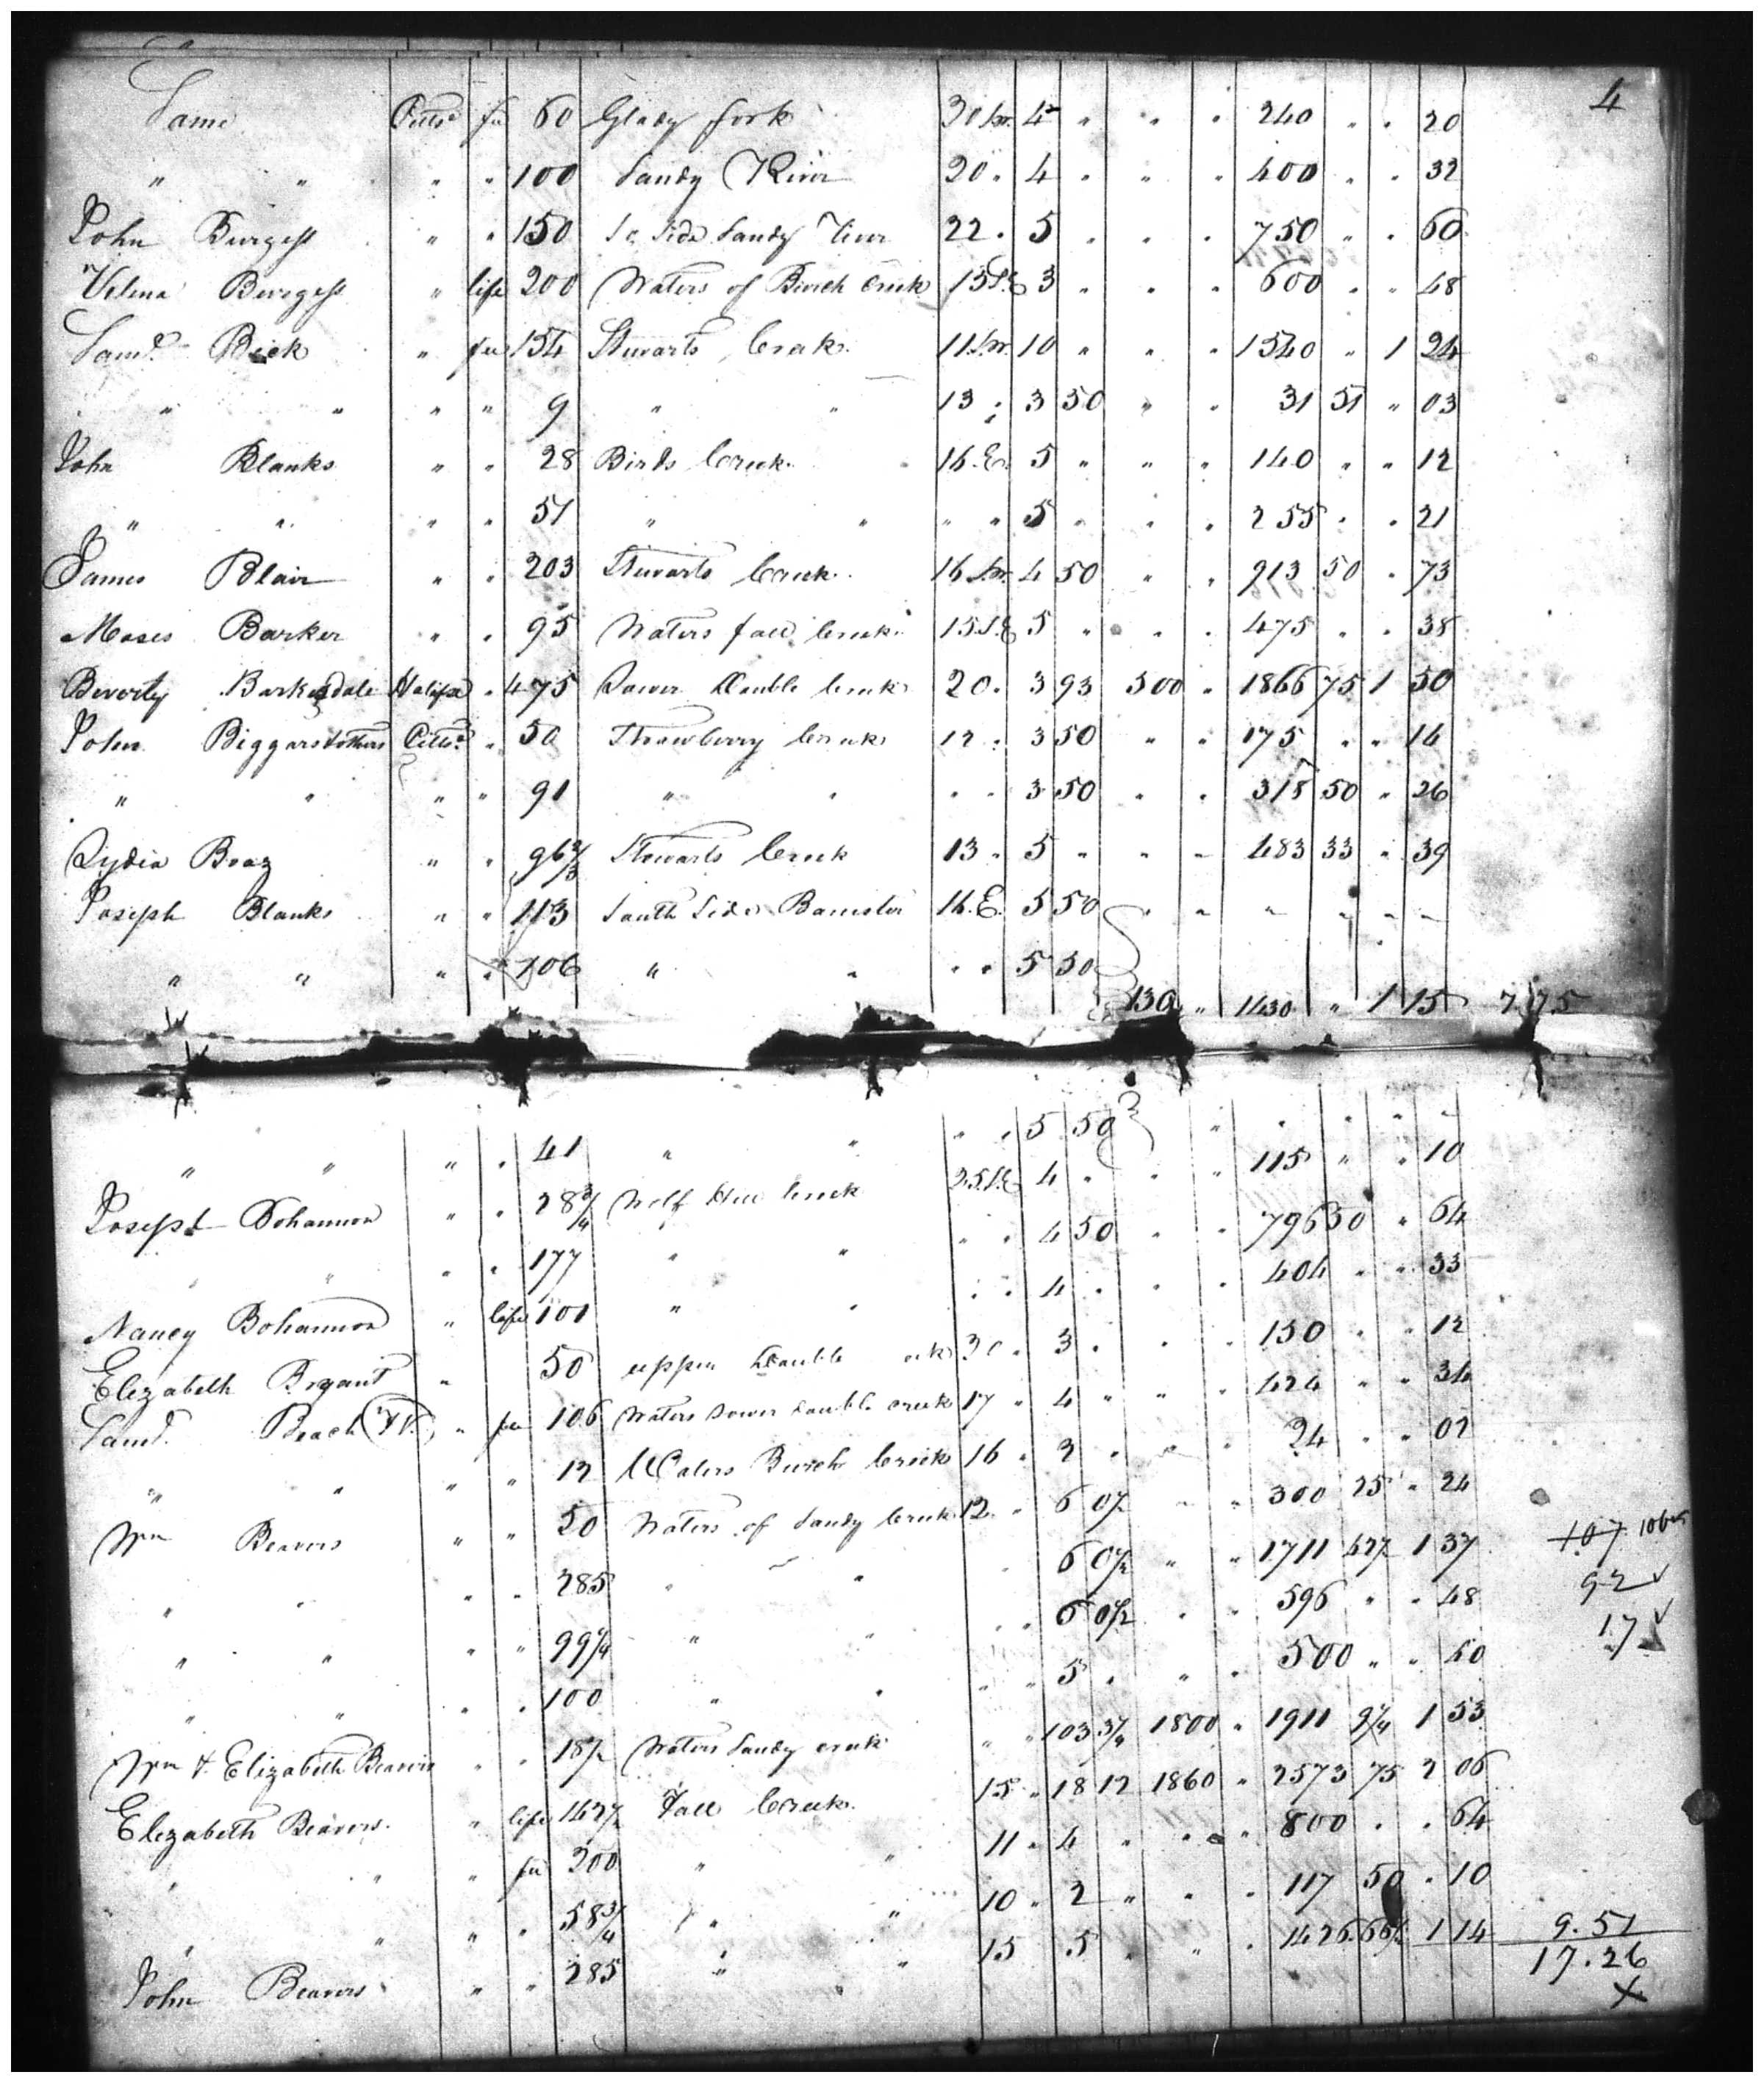 4
Same Pitts^a fee 60 Glady fork 30 S.W. 4 " " " 240 " " 20
" " " " 100 Sandy River 20 " 4 " " " 400 " " 32
John Burgess " " 150 So Side Sandy River 22 " 5 " " " 750 " " 60
Burgess " life 200 Waters of Birch Creek 13 S.E 3 " " " 600 " " 48
Sam^l Beck " fee 154 Stewarts Creek 11 S.W. 10 " " " 1540 " 1 24
" " " " 9 " " 13 " 3 50 " " 31 51 " 03
John Blanks " " 28 Birds Creek 16 E. 5 " " " 140 " " 12
" " " " 51 " " " " 5 " " " 255 " " 21
James Blair " " 203 Stewarts Creek 16 S.W. 4 50 " " 913 50 " 73
Moses Barker " " 95 Waters fall Creek 15 S.E 5 " " " 475 " " 38
Beverly Barkesdale Halifax " 475 Lower Double Creek 20 " 3 93 500 " 1866 75 1 50
John Biggarstothers Pitts^a " 50 Strawberry Creek 12 " 3 50 " " 175 " " 14
" " " " 91 " " " " 3 50 " " 318 50 " 26
Lydia Boaz " " 96 2/3 Stewarts Creek 13 " 5 " " " 483 33 " 39
Joseph Blanks " " 113 South Side Banister 16 E. 5 50 " " " " " "
" " " " 106 " " " " 5 50
130 " 1430 " 1 15 7.75
" " " " 41 " " " " 5 50 " " " " "
Joseph Bohannon " " 28 3/4 Wolf Hill Creek 25 S.E 4 " " " 115 " " 10
" " " " 177 " " " " 4 50 " " 796 50 " 64
Nancy Bohannon " life 101 " " " " 4 " " " 404 " " 33
Elizabeth Bryant " 50 upper Double 30 " 3 " " " 150 " " 12
Sam^l Beach " fee 106 Waters Lower Double creek 17 " 4 " " " 424 " " 34
" " " " 12 Waters Birch Creek 16 " 2 " " " 24 " " 02
Wm Beavers " " 50 Waters of Sandy Creek 12 " 6 0 1/2 " " 300 25 " 24
" " " " 285 " " " 6 0 1/2 " " 1711 42 1/2 1 37 107 106
" " " " 99 1/4 " " " " 6 0 1/2 " " 596 " " 48 92 ✓
" " " " 100 " " " " 5 " " " 500 " " 40 17 ✓
Wm & Elizabeth Beavers " " 18 1/2 Waters Sandy creek " " 103 3 1/4 1800 " 1911 9 1/4 1 53
Elizabeth Beavers " life 142 1/2 Fall Creek 15 " 18 12 1860 " 2573 75 2 06
" " " fee 200 " " 11 " 4 " " " 800 " " 64
" " " " 58 3/4 " " 10 " 2 " " " 117 50 " 10
John Beavers " " 285 " " 15 5 " " " 1426 66 1 14 9.51
17.26
X